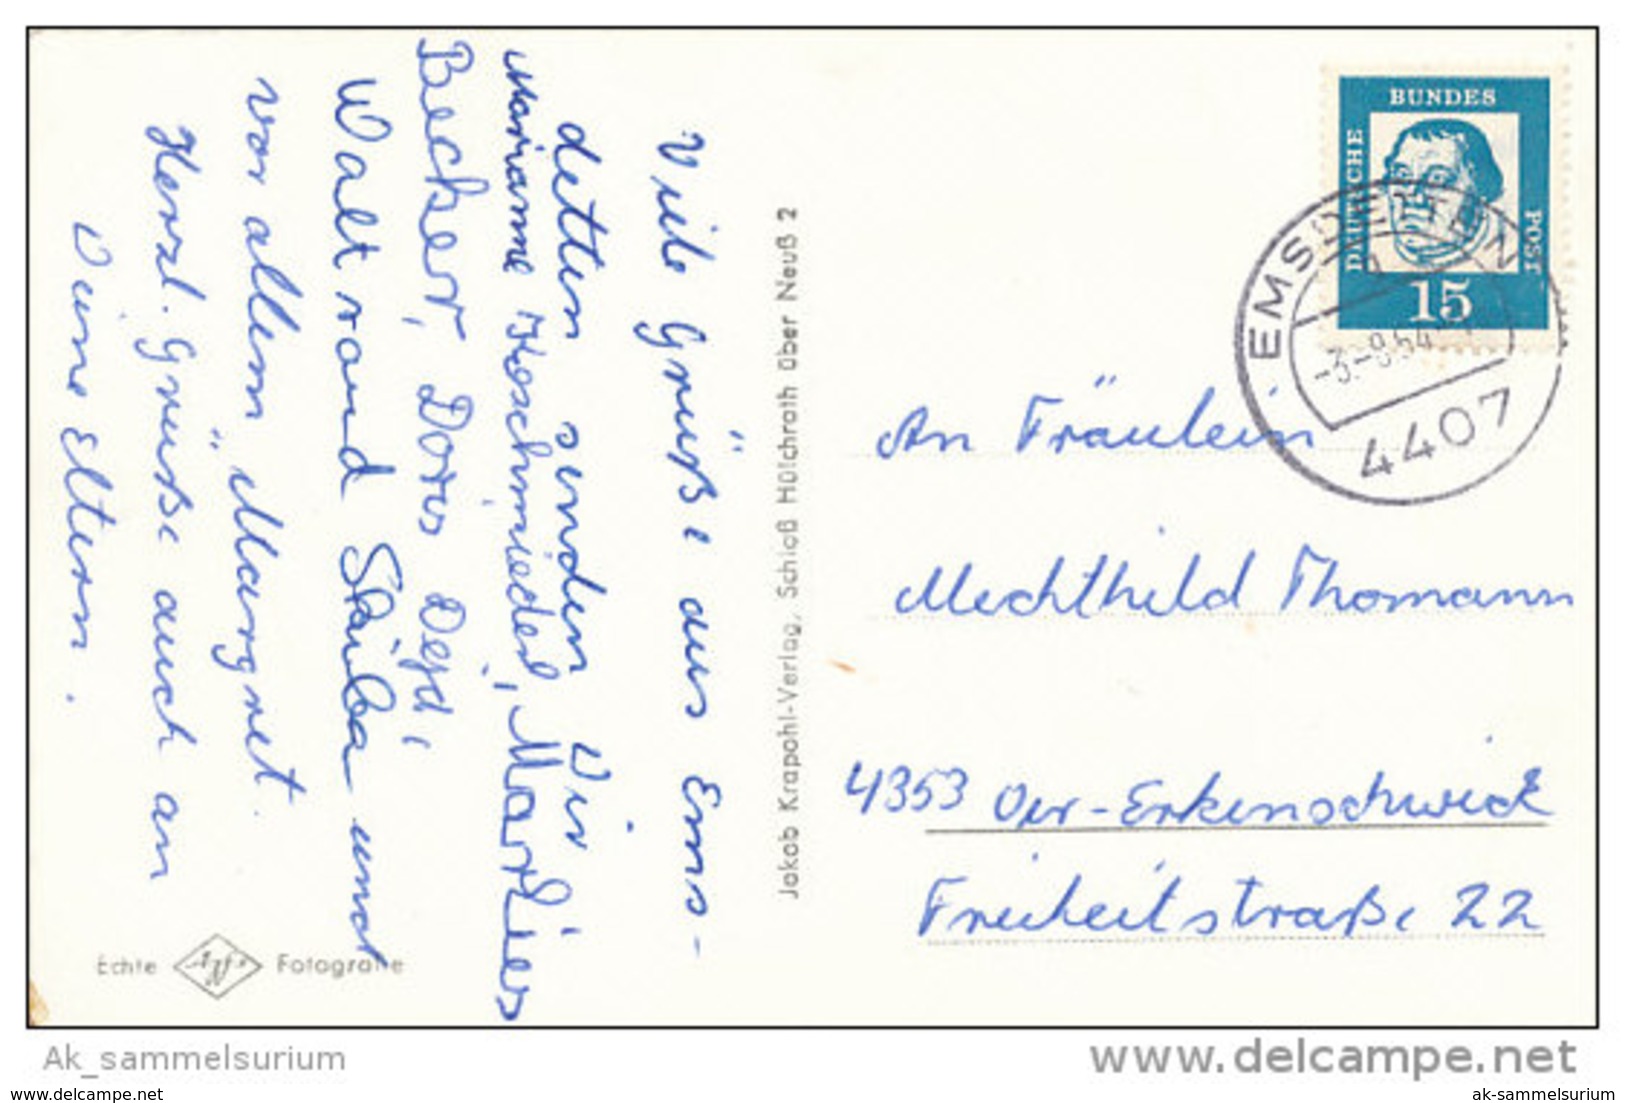 Viele Grüße aus Ems-
detten senden Dir
Marianne Koschmieder, Marlies
Becker, Doris Deja,
Waltraud Skiba und
vor allem Margret.
Herzl. Grüße auch an
Deine Eltern.
Echte Agfa Fotografie
Jakob Krapohl-Verlag, Schloß Hülchrath über Neuß 2
DEUTSCHE BUNDES POST
15
EMSDETTEN
4407
An Fräulein
Mechthild Thomann
4353 Oer-Erkenschwick
Freiheitstraße 22
Ak_sammelsurium
www.delcampe.net
www.delcampe.net
ak-sammelsurium